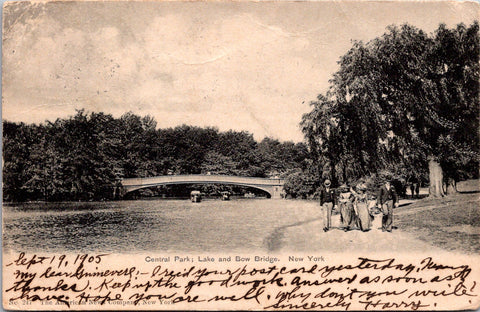 Central Park; Lake and Bow Bridge. New York
Sept 19, 1905
My dear Ginevere:- I rec'd your post card yesterday. Many
thanks. Keep up the good work. Answer as soon as you
have. Hope you are well. Why don't you write
No. 217 The American News Company, New York.
sincerely Harry.